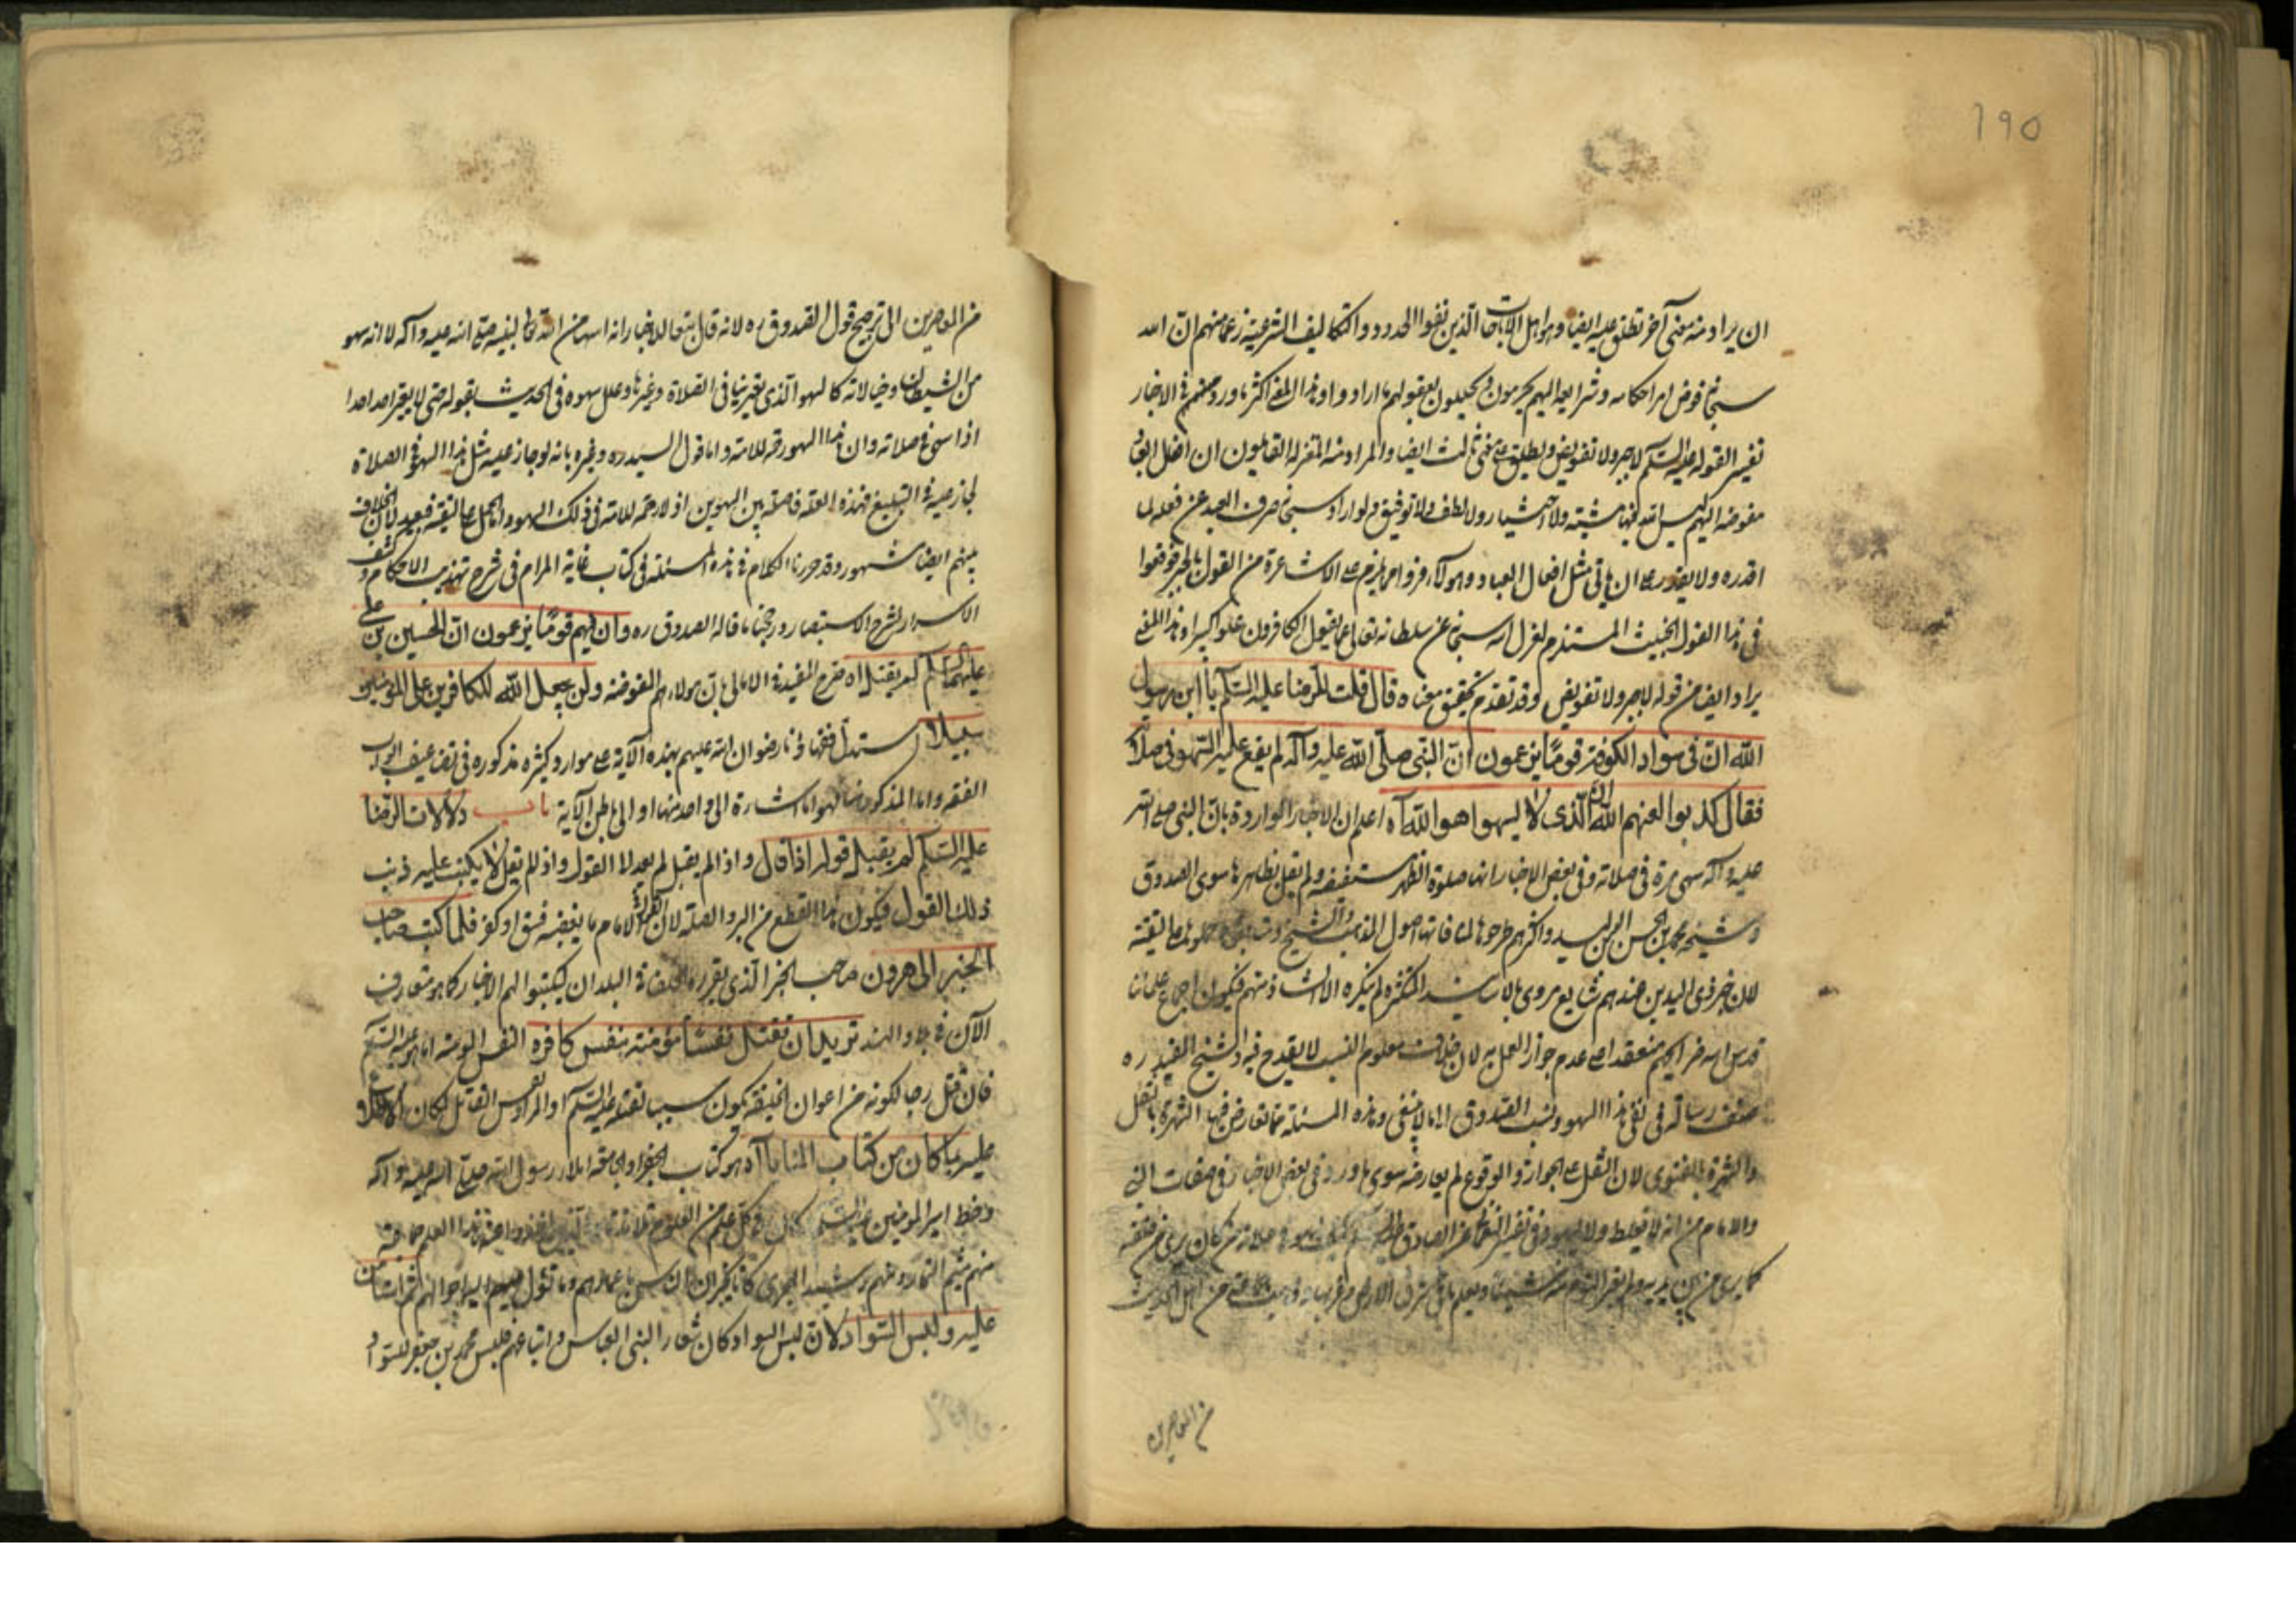 190
ان يراد منه معنى آخر تطلق عليه ايضا وهو اهل الاباحات الذين نفوا الحدود والتكاليف الشرعية زعما منهم ان الله
سبحانه فوض امر احكامه وشرايعه اليهم يحرمون ويحللون بعقولهم ما ارادوا وهذا المعنى اكثر ما ورد منهم في الاخبار
تفسير القوله عليه السلام لا جبر ولا تفويض ويطلق على معنى ثالث ايضا والمراد منه المعتزلة القايلون ان افعال العباد
مفوضة اليهم ليس لله فيها مشية ولا اختيار ولا لطف ولا توفيق ولو اراد سبحانه صرف العبد عن فعله لما
اقدره ولا يقدر على ان ياتي مثل افعال العباد وهؤلاء فروا مما يلزم على الاشاعرة من القول بالجبر فوقعوا
في هذا القول الخبيث المستلزم لعزل الله سبحانه عن سلطانه تعالى عما يقول الكافرون علوا كبيرا وهذا المعنى
يراد ايضا من قوله لا جبر ولا تفويض وقد تقدم تحقيق معناه قال قلت للرضا عليه السلام يا ابن رسول
الله ان في سواد الكوفة قوما يزعمون ان النبي صلى الله عليه وآله لم يقع عليه السهو في صلاته
فقال كذبوا لعنهم الله ان الذي لا يسهو هو الله آه اعلم ان الاخبار الواردة بان النبي صلى الله
عليه وآله سهى مرة في صلاته وفي بعض الاخبار انها صلوة الظهر مستفيضة ولم يقل بظاهرها سوى الصدوق
وشيخه محمد بن الحسن بن الوليد واكثرهم طرحوها لمنافاتها اصول المذهب والشيخ حملوها على التقية
لان خبر ذي اليدين عندهم شايع مروي بالاسانيد المتكثرة لم ينكره الا الشاذ منهم فيكون اجماع علمائنا
قدس الله ضرايحهم منعقدا على عدم جواز العمل به لان خلاف معلوم النسب لا يقدح فيه والشيخ المفيد ره
صنف رسالة في نفي هذا السهو ونسب الصدوق الى ما لا ينبغي وهذه المسئلة مما تعارض فيها الشهرة بالنقل
والشهرة بالفتوى لان النقل على الجواز والوقوع لم يعارضه سوى ما ورد في بعض الاخبار في صفات النبي
والامام من انه لا يغلط ولا يسهو وفي تفسير النعماني عن الصادق عليه السلام كيف يسهو في صلاته من كان يرى من خلفه
كما يرى من بين يديه
من المعاصرين
من المعاصرين الى ترجيح قول الصدوق ره لانه قال تبعا للاخبار انه اسهاء من الله تعالى لنبيه صلى الله عليه وآله لا انه سهو
من الشيطان وخيالاته كالسهو الذي يعترينا في الصلاة وغيرها وعلل سهوه في الحديث بقوله حتى لا يعير احد احدا
اذا سهى في صلاته وان هذا السهو رحمة للامة واما قول السيد ره وغيره بانه لو جاز عليه مثل هذا السهو في الصلاة
لجاز عليه في التبليغ فهذه العلة فاصلة بين السهوين اذ لا رحمة للامة في ذلك السهو واما الحمل على التقية فبعيد لان الخلاف
بينهم ايضا مشهور وقد حررنا الكلام في هذه المسئلة في كتاب غاية المرام في شرح تهذيب الاحكام وكشف
الاسرار لشرح الاستبصار ورجحنا ما قاله الصدوق ره وان فيهم قوما يزعمون ان الحسين بن علي
عليهما السلام لم يقتل اه صرح المفيد في الامالي بان هؤلاء هم المفوضة ولن يجعل الله للكافرين على المؤمنين
سبيلا استدل فقهاؤنا رضوان الله عليهم بهذه الآية على موارد كثيرة مذكورة في تضاعيف ابواب
الفقه واما المذكور هنا فهو اما اشارة الى واحد منها او الى باطن الآية باب دلالات الرضا
عليه السلام لم يقبل قوله اذا قال واذا لم يقبل لم يعد لا القول واذ لم يقل لا يكتب عليه ذنب
ذلك القول فيكون هذا القطع من البر والصلة لان الامام ما يغضبه فسق او كفر فلما كتب صاحب
الخبر الى هرون صاحب الخبر الذي يقرره الخلفاء في البلدان ليكتبوا لهم الاخبار كما هو متعارف
الآن في بلاد الهند تريد ان تقتل نفسا مؤمنة بنفس كافرة النفس المؤمنة اما هو عليه السلام
فان قتل رجا لكونه من اعوان الخليفة يكون سببا لقتله عليه السلام او المراد نفس القاتل
عليه ما كان من كتاب المنايا آه هو كتاب الجفر او الجامعة املاء رسول الله صلى الله عليه وآله
وخط امير المؤمنين عليه السلام كان في كل علم من العلوم تلامذة
منهم ميثم التمار ومنهم رشيد الهجري كانا يخبران الناس باعمارهم وما تؤل اليه احوالهم
عليه ولبس السواد لان لبس السواد كان شعار البني العباس واتباعهم فلبس محمد بن جعفر السواد